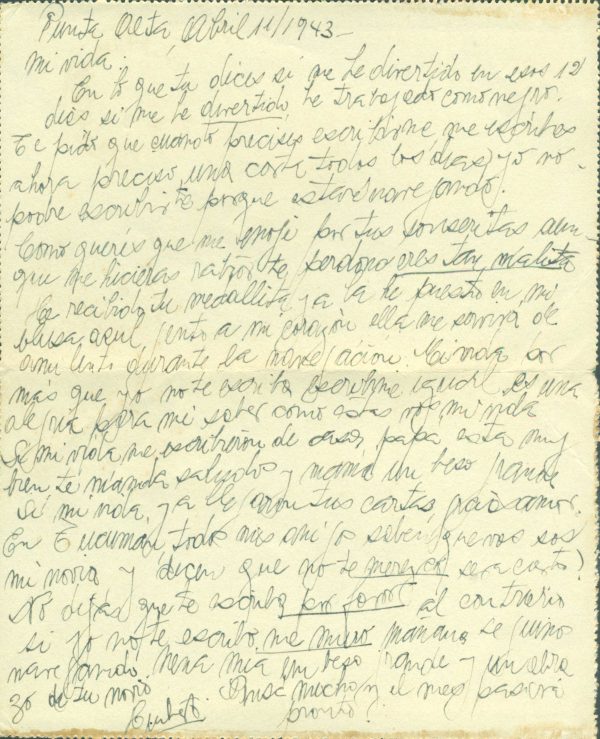 Punta Alta, Abril 11/1943-
mi vida.
En lo que tu dices si me he divertido en esos 12
dias si me he divertido, he trabajado como negro.
Te pido que cuando precises escribirme me escribas
ahora preciso una carta todos los dias, yo no
podre escribirte porque estaré navegando.
Como querés que me enoje por tus sonseritas aun-
que me hicieras rabiar te perdono eres tan malita
He recibido tu medallita, ya la he puesto en mi
blusa, aquí junto a mi corazón ella me servirá de
durante la navegación. Mi vida por
más que yo no te escriba escribime igual es una
alegria para mi saber como estas vos mi vida
Si mi vida me escribieron de casa, papa esta muy
bien te manda saludos y mama un beso grande
Si mi vida, ya llegaron tus cartas, gracias amor.
En Tucuman todos mis amigos saben que vos sos
mi novia y dicen que no te merezco sera cierto?
No digás que te escriba por favor al contrario
si yo no te escribo me muero mañana
navegando nena mia un beso grande y un abra
zo de tu novio. mucho y el mes pasará
pronto.